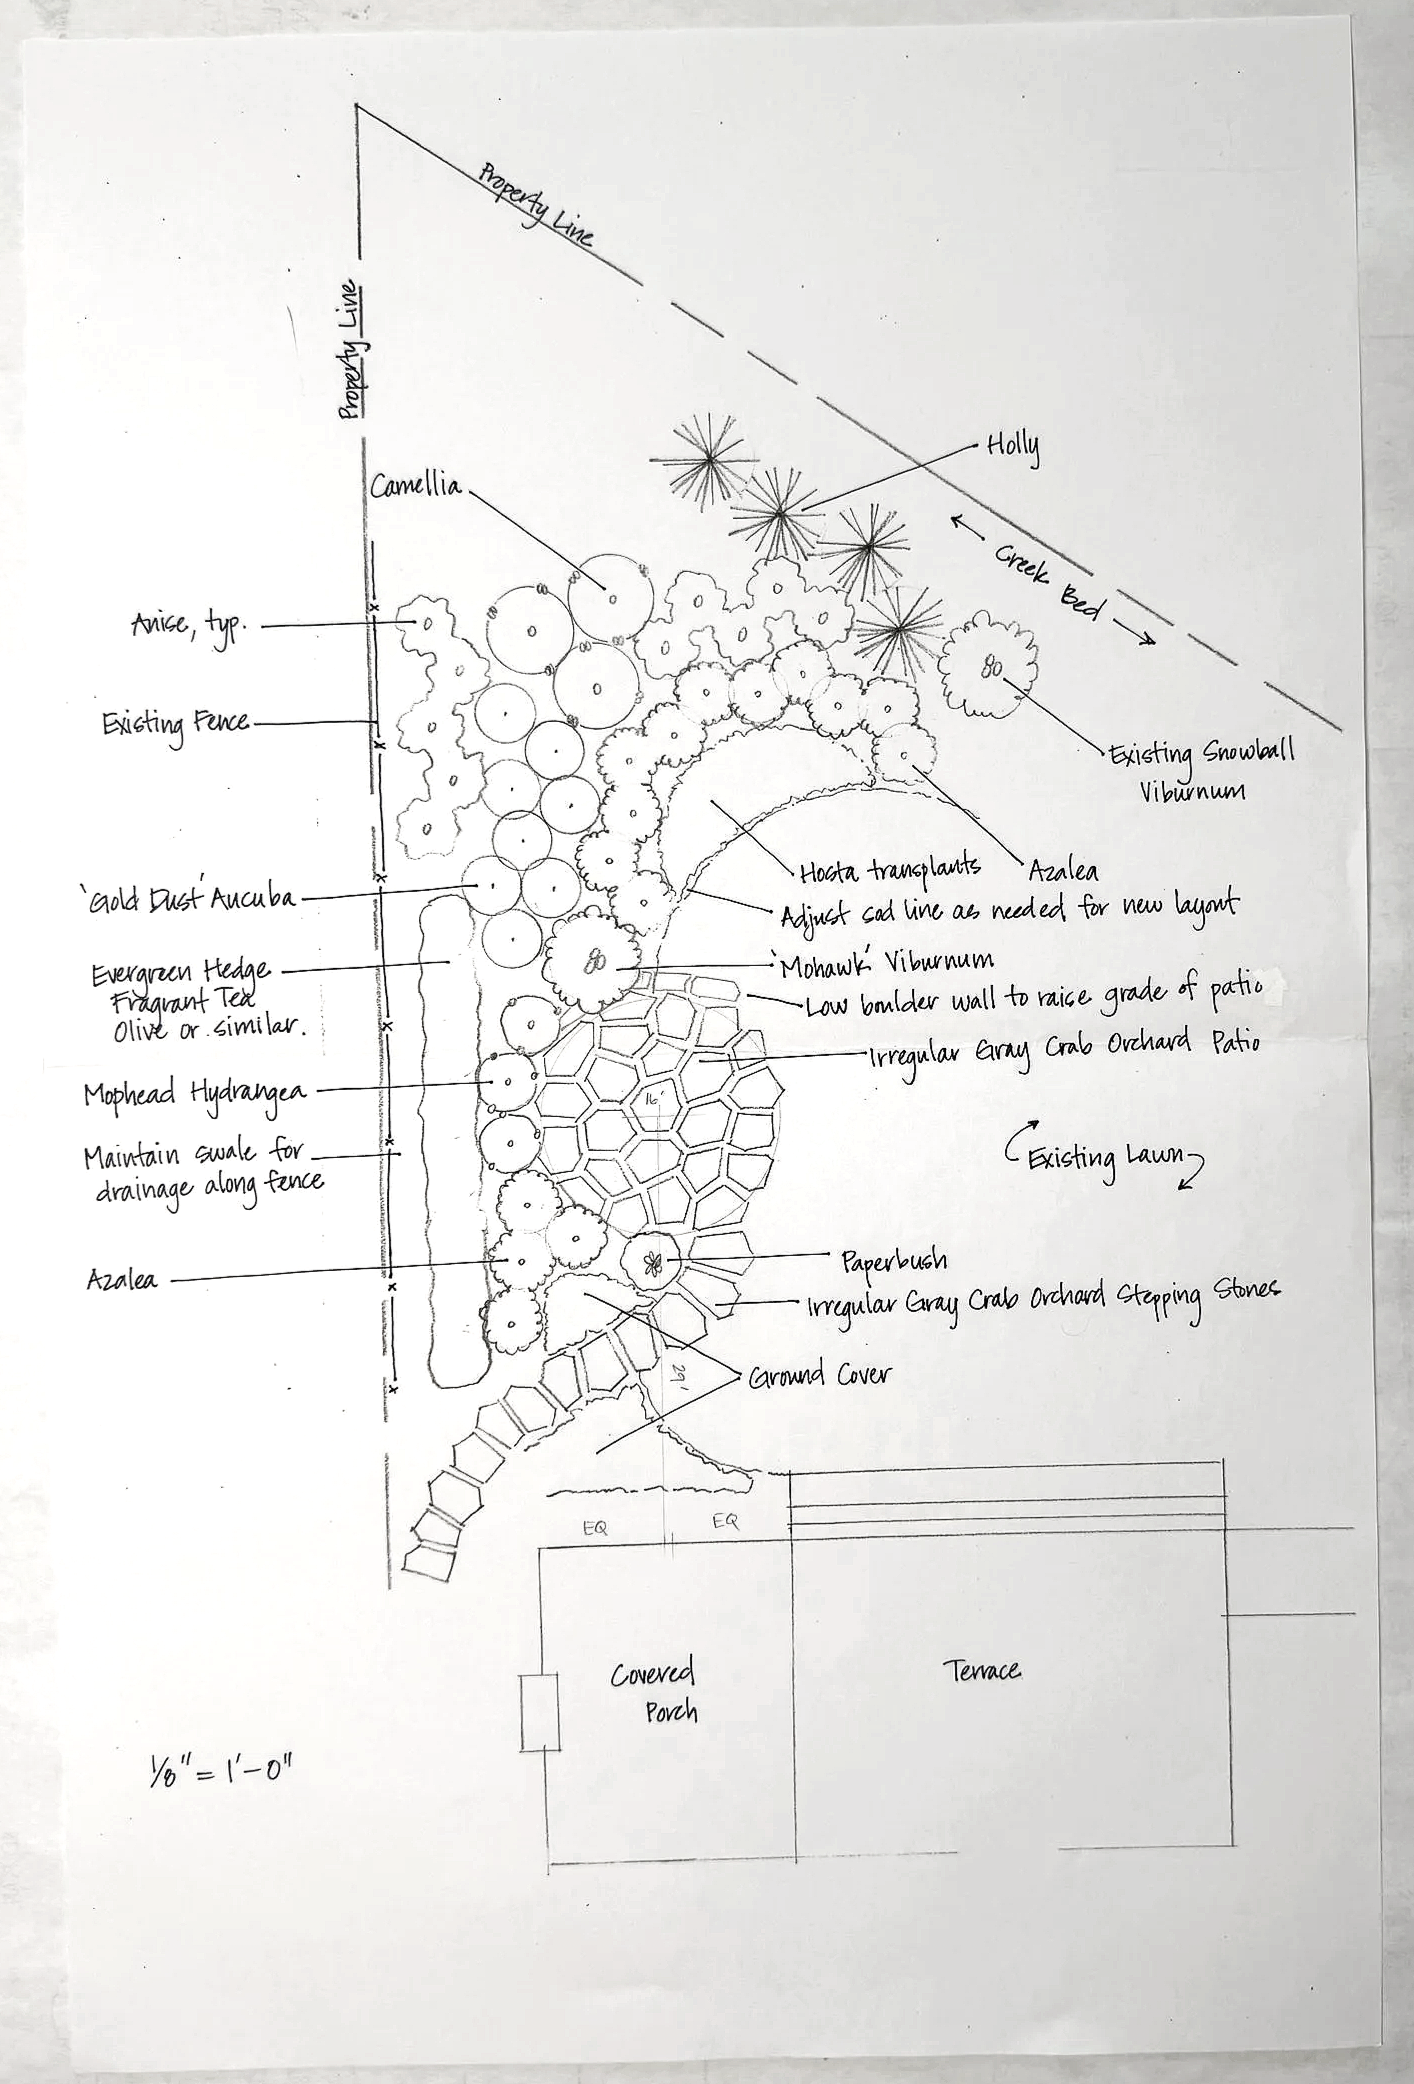 Property Line
Property Line
Holly
Camellia
Creek Bed
Anise, typ.
Existing Fence
Existing Snowball
Viburnum
Hosta transplants
Azalea
'Gold Dust' Aucuba
Adjust sod line as needed for new layout
'Mohawk' Viburnum
Evergreen Hedge
Fragrant Tea
Olive or similar.
Low boulder wall to raise grade of patio
Irregular Gray Crab Orchard Patio
Mophead Hydrangea
16'
Maintain swale for
drainage along fence
Existing Lawn
Azalea
Paperbush
Irregular Gray Crab Orchard Stepping Stones
29'
Ground Cover
EQ
EQ
Covered
Porch
Terrace
1/8" = 1'-0"